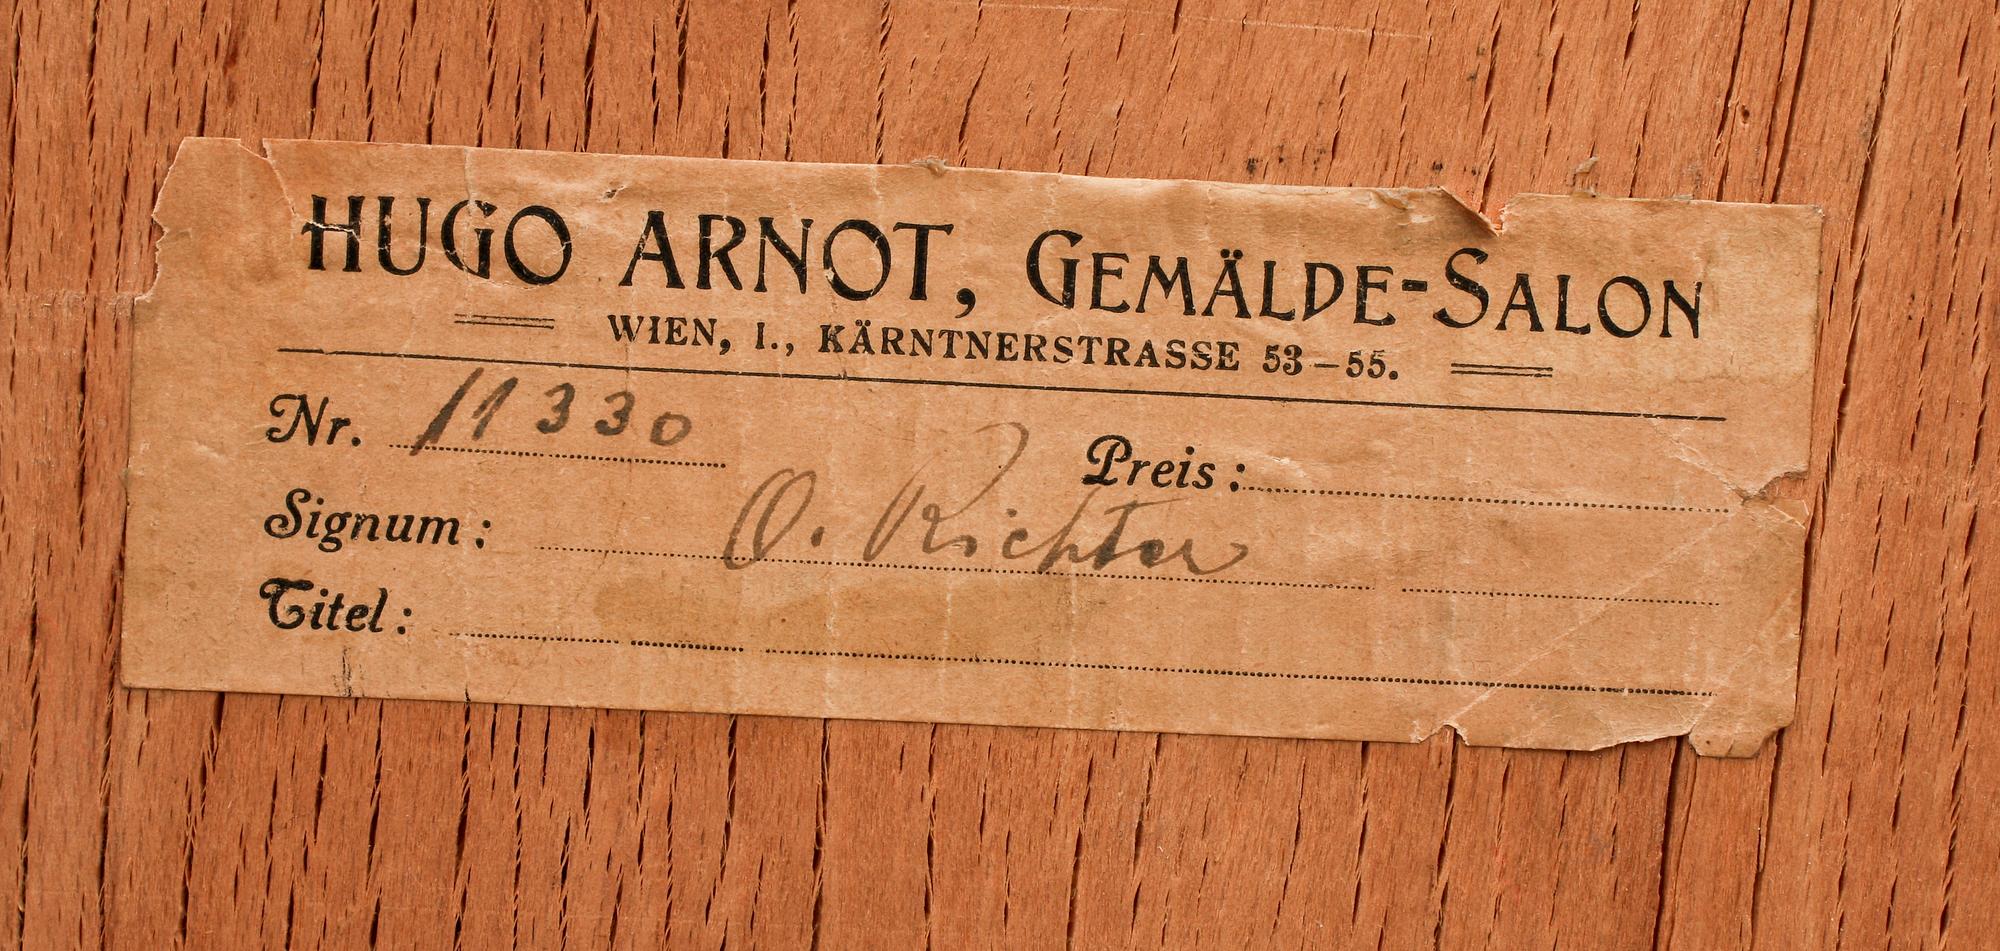 HUGO ARNOT, GEMÄLDE-SALON
WIEN, I., KÄRNTNERSTRASSE 53–55.
Nr. 11330
Preis:
Signum: O. Richter
Titel: